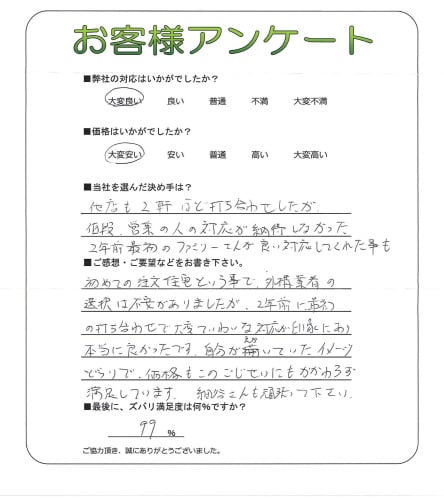 お客様アンケート
■弊社の対応はいかがでしたか?
大変良い 良い 普通 不満 大変不満
■価格はいかがでしたか?
大変安い 安い 普通 高い 大変高い
■当社を選んだ決め手は?
他店も2軒ほど打ち合わせしたが、
値段、営業の人の対応が納得しなかった
2年前最初のファミリーさんが良い対応してくれた事も
■ご感想・ご要望などをお書き下さい。
初めての注文住宅という事で、外構業者の
選択は不安がありましたが、2年前に最初
の打ち合わせで大変ていねいな対応が印象にあり
本当に良かったです。自分が描いていたイメージ
どうりで、価格もこのごじせいにもかかわらず
満足しています。 さんも頑張って下さい。
■最後に、ズバリ満足度は何%ですか?
99 %
ご協力頂き、誠にありがとうございました。